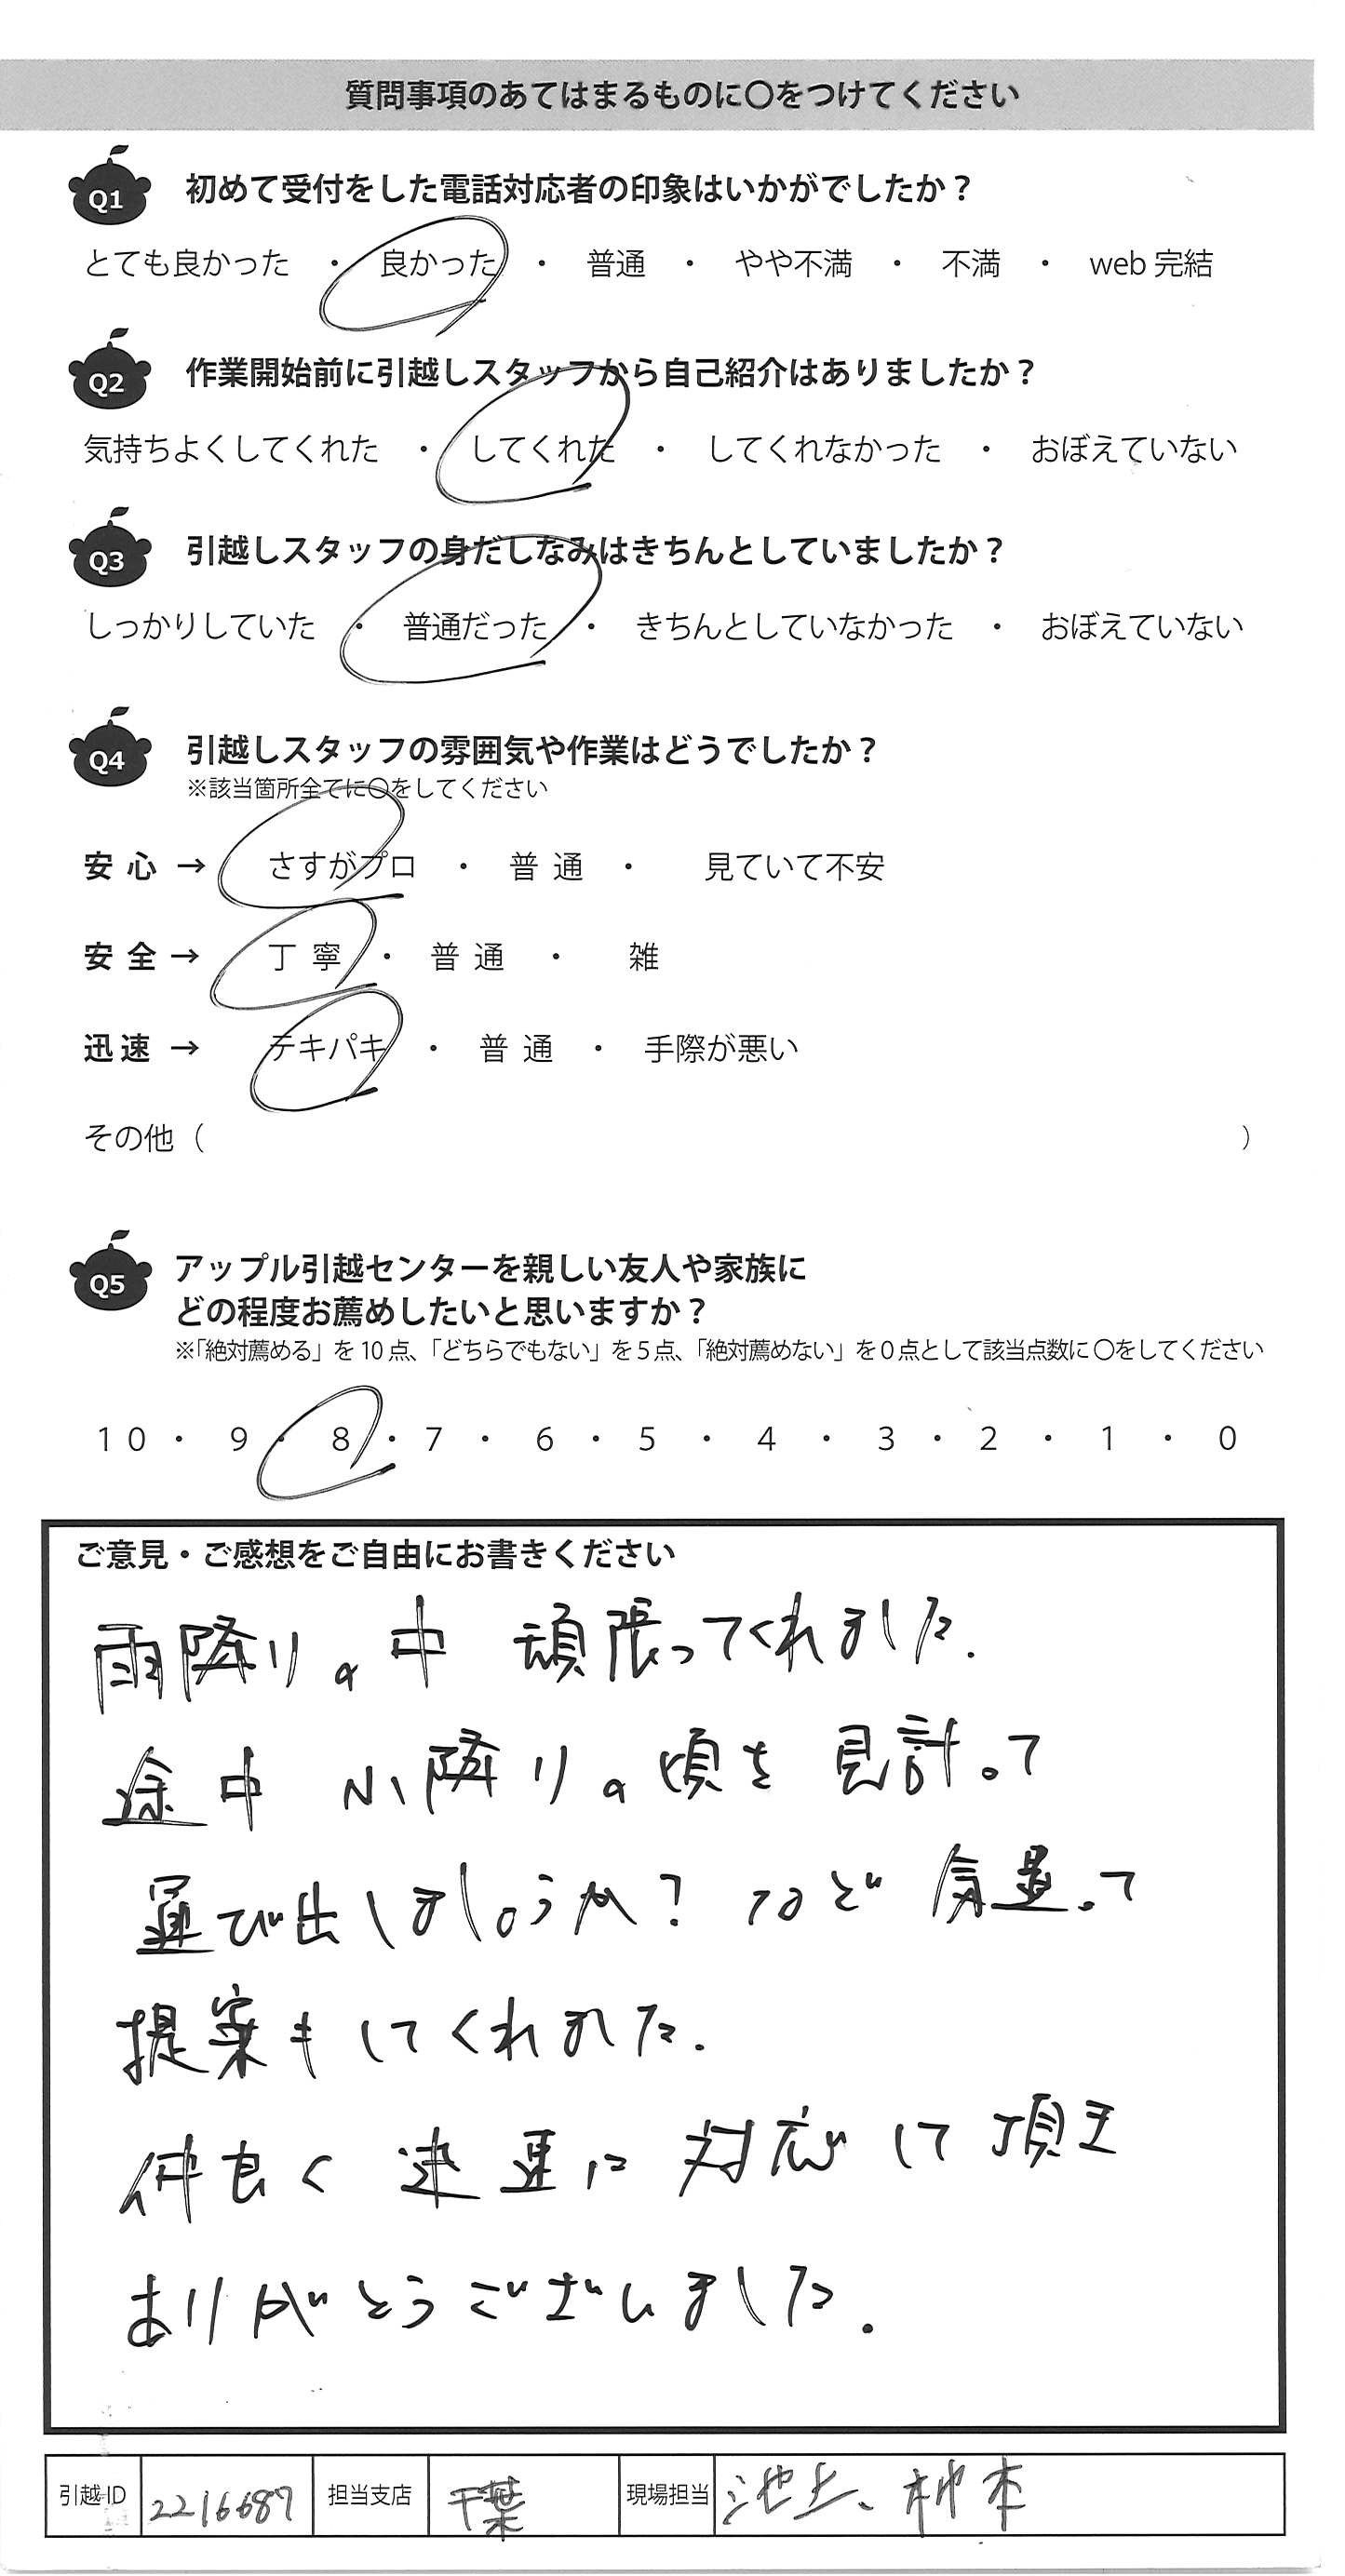 質問事項のあてはまるものに〇をつけてください
Q1 初めて受付をした電話対応者の印象はいかがでしたか？
とても良かった ・ 良かった ・ 普通 ・ やや不満 ・ 不満 ・ web 完結
Q2 作業開始前に引越しスタッフから自己紹介はありましたか？
気持ちよくしてくれた ・ してくれた ・ してくれなかった ・ おぼえていない
Q3 引越しスタッフの身だしなみはきちんとしていましたか？
しっかりしていた ・ 普通だった ・ きちんとしていなかった ・ おぼえていない
Q4 引越しスタッフの雰囲気や作業はどうでしたか？
※該当箇所全てに〇をしてください
安心 → さすがプロ ・ 普通 ・ 見ていて不安
安全 → 丁寧 ・ 普通 ・ 雑
迅速 → テキパキ ・ 普通 ・ 手際が悪い
その他（ ）
Q5 アップル引越センターを親しい友人や家族に
どの程度お薦めしたいと思いますか？
※「絶対薦める」を10点、「どちらでもない」を5点、「絶対薦めない」を0点として該当点数に〇をしてください
10 ・ 9 ・ 8 ・ 7 ・ 6 ・ 5 ・ 4 ・ 3 ・ 2 ・ 1 ・ 0
ご意見・ご感想をご自由にお書きください
雨降りの中 頑張ってくれました.
途中 小降りの頃を見計って
運び出しましょうか？など 気遣って
提案もしてくれました.
仲良く 迅速に 対応して頂き
ありがとうございました.
引越ID 2216687 担当支店 千葉 現場担当 池上、柿本